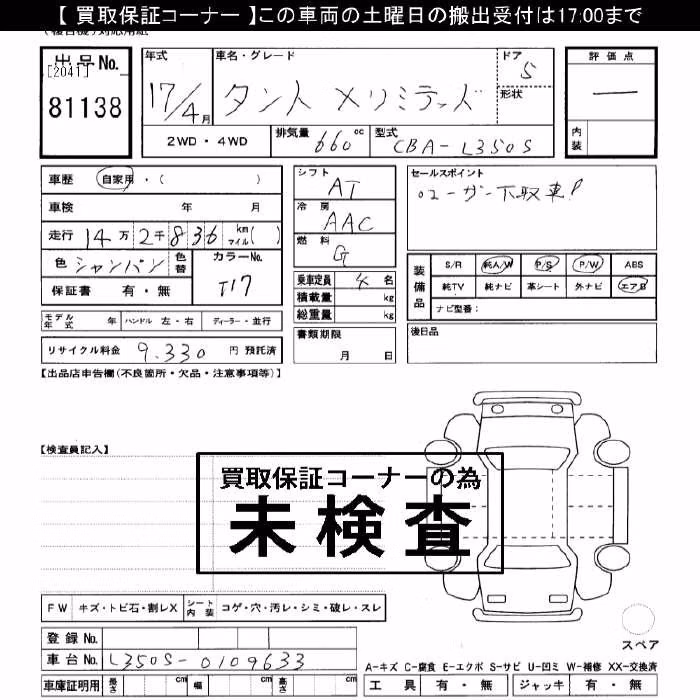 【 買取保証コーナー 】この車両の土曜日の搬出受付は17:00まで
出品No.
[2041]
81138
年式
17/4月
車名・グレード
タント Xリミテッド
ドア
5
形状
2WD・4WD
排気量
660 cc
型式
CBA-L350S
評価点
内装
車歴 自家用・( )
車検 年 月
走行 14万2千836 km マイル( )
色 シャンパン 色替
カラーNo.
T17
保証書 有・無
モデル年式 年 ハンドル 左・右 ディーラー・並行
リサイクル料金 9.330 円 預託済
シフト
AT
冷房
AAC
燃料
G
乗車定員 4 名
積載量 kg
総重量 kg
書類期限
月 日
セールスポイント
ユーザー下取車!
装備品
S/R 純A/W P/S P/W ABS
純TV 純ナビ 革シート 外ナビ エアB
ナビ型番:
後日品
【出品店申告欄(不良箇所・欠品・注意事項等)】
【検査員記入】
買取保証コーナーの為
未検査
FW キズ・トビ石・割レX シート内装 コゲ・穴・汚レ・シミ・破レ・スレ
登録No.
車台No. L350S-0109633
車庫証明用 長さ cm 幅 cm 高さ cm
スペア
A-キズ C-腐食 E-エクボ S-サビ U-凹ミ W-補修 XX-交換済
工具 有・無 ジャッキ 有・無